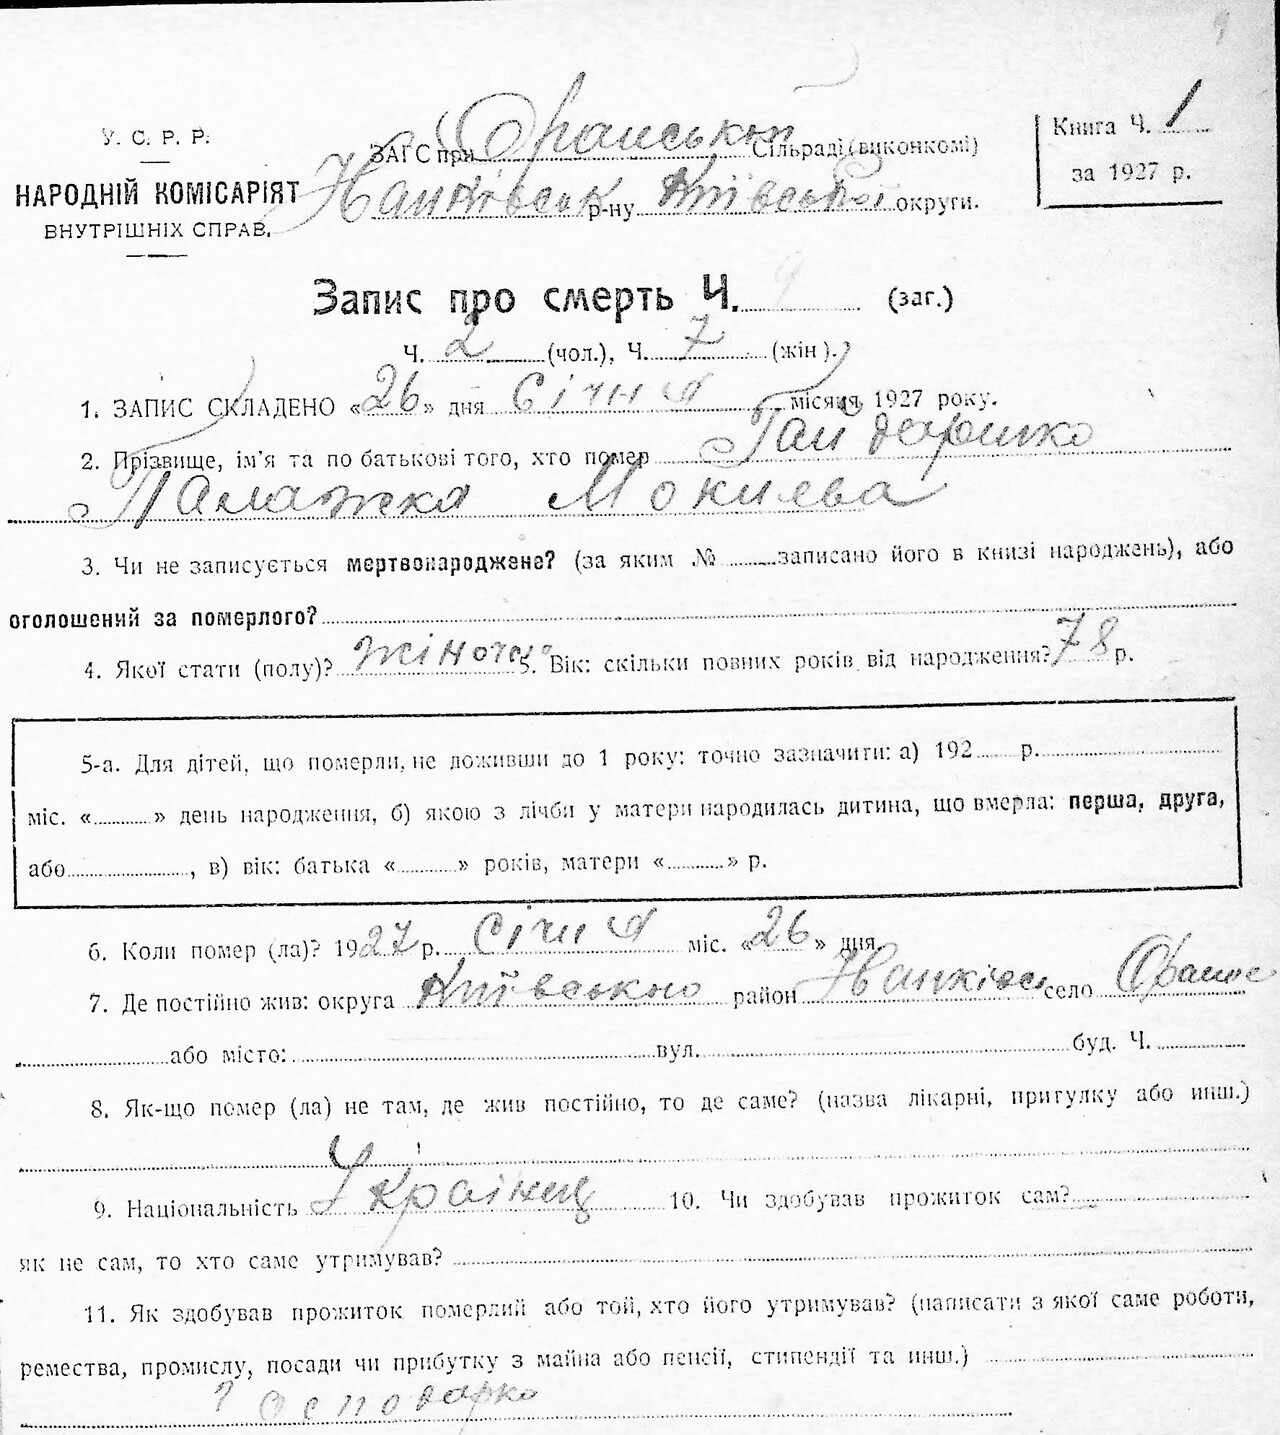 9
У. С. Р. Р.
НАРОДНІЙ КОМІСАРІЯТ
ВНУТРІШНІХ СПРАВ.
ЗАГС при Ораньській Сільраді (виконкомі)
р-ну Київської округи.
Книга Ч. 1
за 1927 р.
Запис про смерть Ч. 9 (заг.)
Ч. 2 (чол.), Ч. 7 (жін).
1. ЗАПИС СКЛАДЕНО «26» дня Січня місяця 1927 року.
2. Прізвище, ім'я та по батькові того, хто помер Гайдаренко
Палажка Мокиева
3. Чи не записується мертвонароджене? (за яким № записано його в книзі народжень), або
оголошений за померлого?
4. Якої стати (полу)? жіночо 5. Вік: скільки повних років від народження? 78 р.
5-а. Для дітей, що померли, не доживши до 1 року: точно зазначити: а) 192 р.
міс. « » день народження, б) якою з лічби у матери народилась дитина, що вмерла: перша, друга,
або , в) вік: батька « » років, матери « » р.
6. Коли помер (ла)? 1927 р. Січня міс. «26» дня.
7. Де постійно жив: округа Київсько район село Оране
або місто: вул. буд. Ч.
8. Як-що помер (ла) не там, де жив постійно, то де саме? (назва лікарні, притулку або инш.)
9. Національність Українец 10. Чи здобував прожиток сам?
як не сам, то хто саме утримував?
11. Як здобував прожиток померлий або той, хто його утримував? (написати з якої саме роботи,
ремества, промислу, посади чи прибутку з майна або пенсії, стипендії та инш.)
Господарко